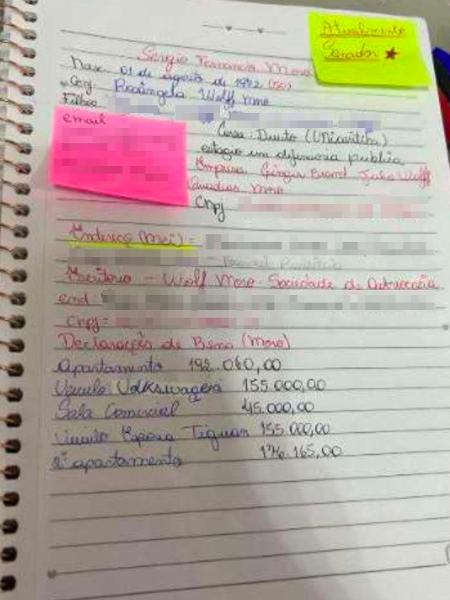 Atualmente
Senador ★
Sergio Fernando Moro
Nasc. 01 de agosto de 1972 (50)
Conj Rosângela Wolff Moro
Filhos
email
Cursa: Direito (Unicuritiba)
estagio em difensoria publica
Empresa
Julia Wolff
Moro
Cnpj
Endereço (Mei) =
Escritorio - Wolf Moro Sociedade de Advocacia
end
Cnpj =
Declaração de Bens (Moro)
Apartamento 192.060,00
Veiculo Volkswagen 155.000,00
Sala Comercial 45.000,00
Tiguan 155.000,00
2º apartamento 176.165,00